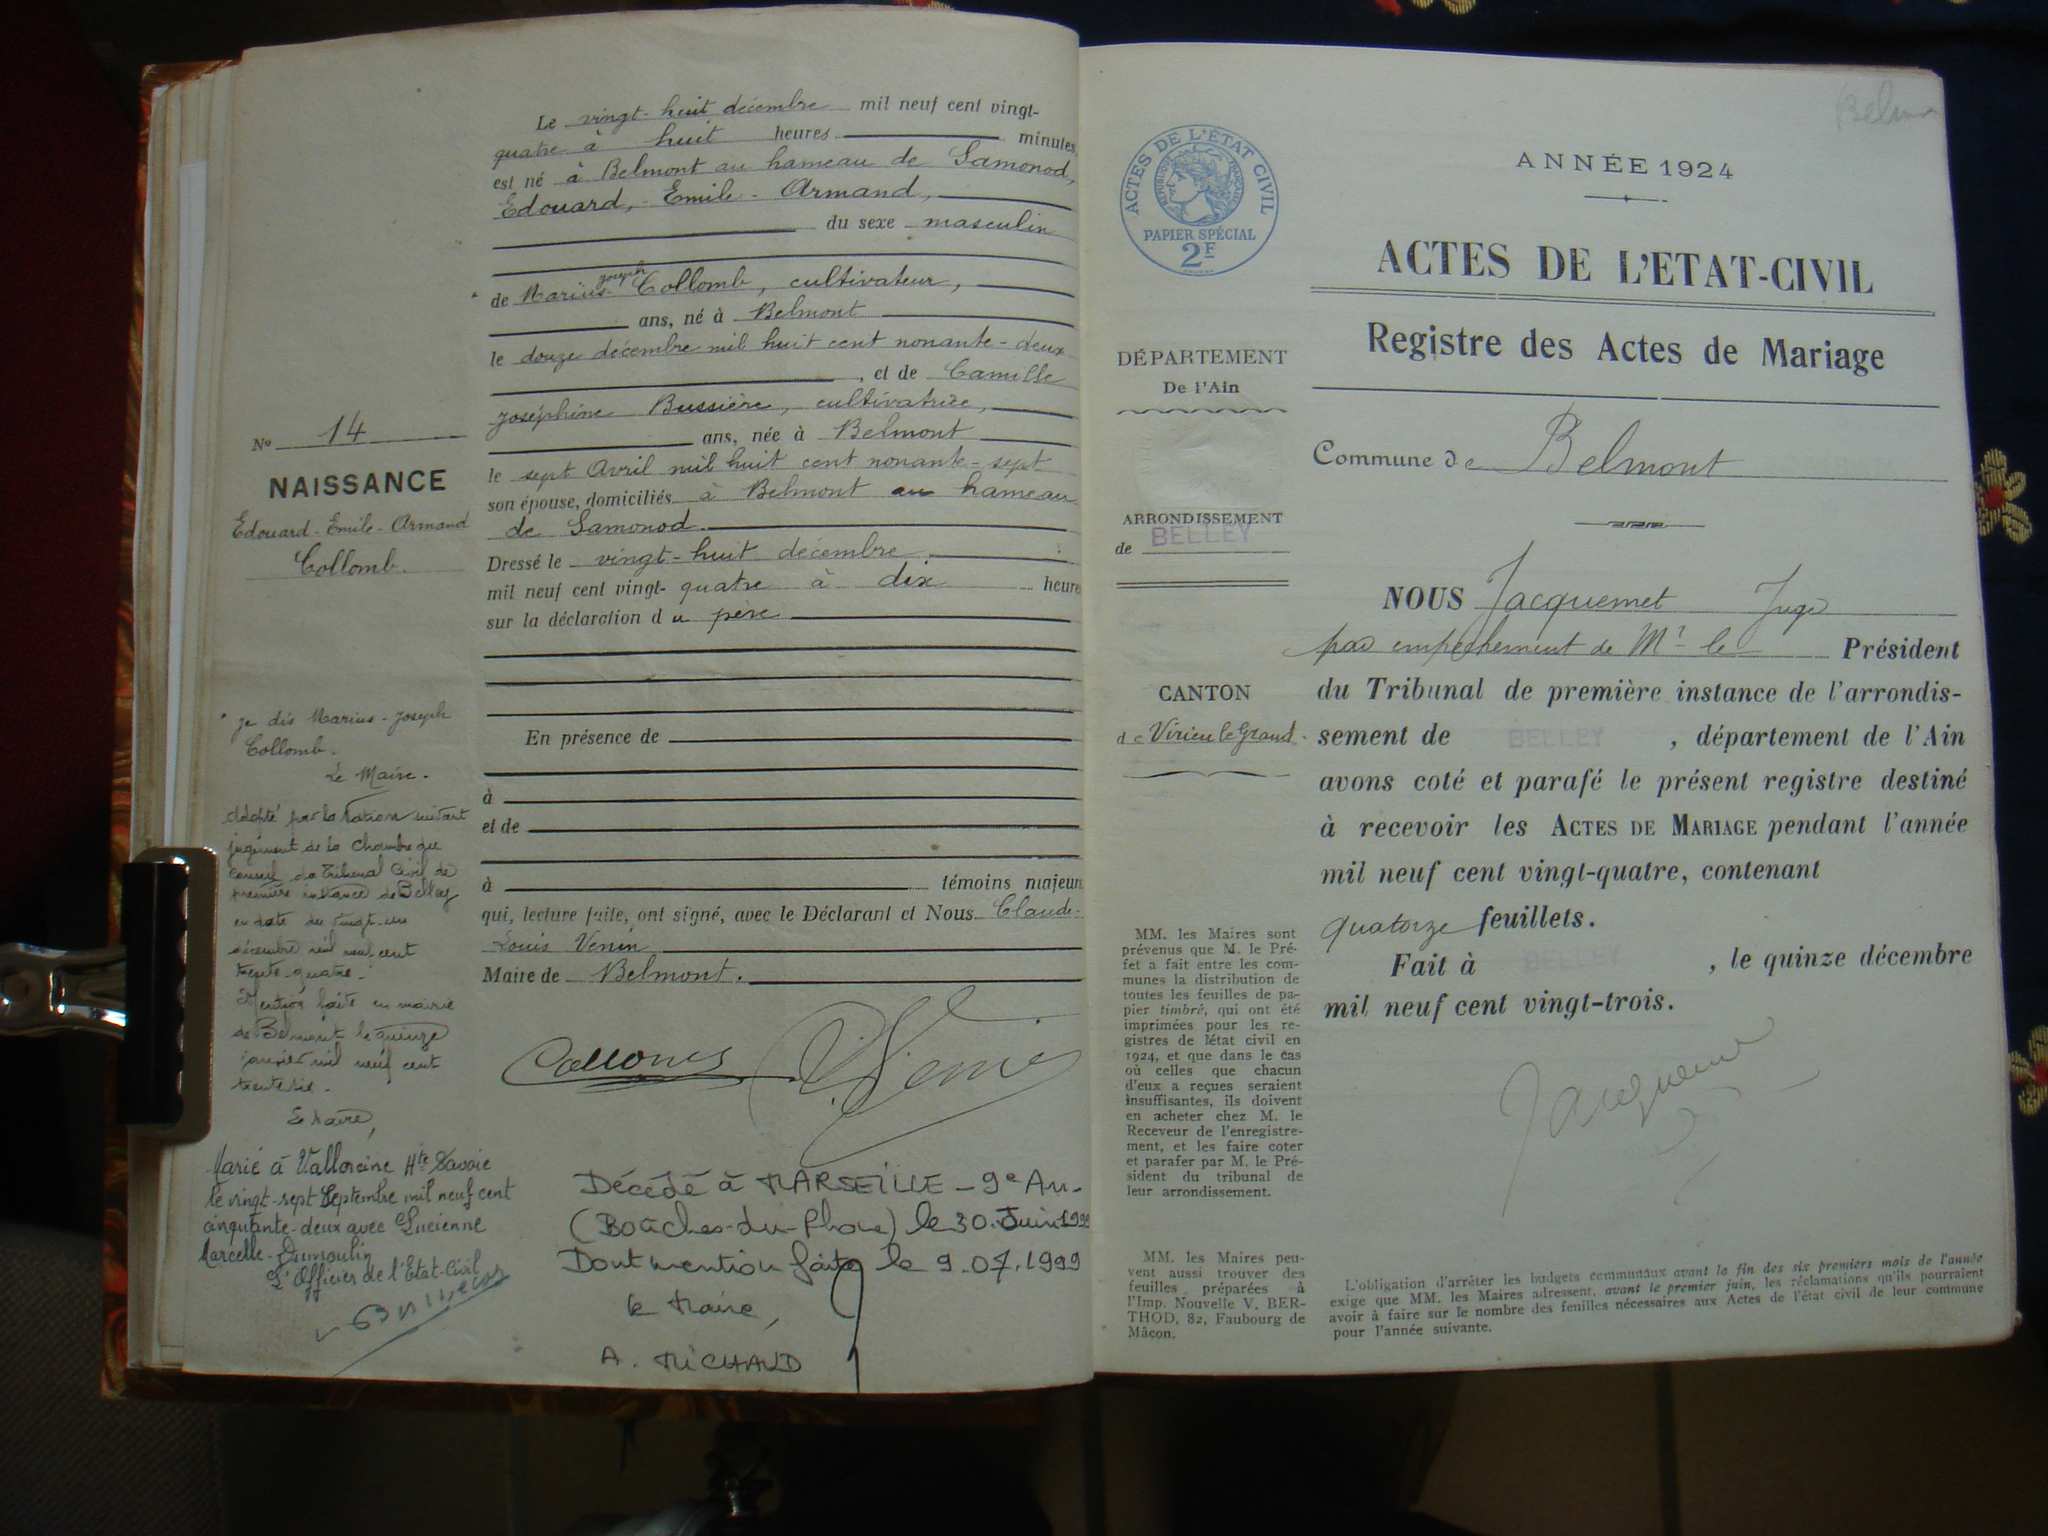 Le vingt-huit décembre mil neuf cent vingt-
quatre à huit heures minutes
est né à Belmont au hameau de Samonod,
Edouard, Emile - Armand,
du sexe masculin
de Marius joseph Collomb, cultivateur,
ans, né à Belmont
le douze décembre mil huit cent nonante-deux
, et de Camille
joséphine Bussière, cultivatrice,
ans, née à Belmont
le sept Avril mil huit cent nonante-sept
son épouse, domiciliés à Belmont au hameau
de Samonod.
Dressé le vingt-huit décembre
mil neuf cent vingt-quatre à dix heure
sur la déclaration du père
En présence de
à
et de
à témoins majeurs
qui, lecture faite, ont signé, avec le Déclarant et Nous Claude-
Louis Venin
Maire de Belmont.
Décédé à MARSEILLE - 9e Arr.
(Bouches-du-Rhône) le 30 Juin 1999
Dont mention faite le 9.07.1999
le Maire,
A. MICHAUD
No 14
NAISSANCE
Edouard-Emile-Armand
Collomb.
je dis Marius-Joseph
Collomb.
Le Maire.
Adopté par la Nation suivant
jugement de la Chambre du
Conseil du Tribunal Civil de
première instance de Belley
en date du vingt-un
décembre mil neuf cent
trente-quatre.
Mention faite en mairie
de Belmont le quinze
janvier mil neuf cent
Le Maire,
Marié à Vallorcine Hte Savoie
le vingt-sept Septembre mil neuf cent
cinquante-deux avec Lucienne
Marcelle Dumoulin
L'Officier de l'Etat-Civil
ACTES DE L'ÉTAT CIVIL
RÉPUBLIQUE FRANÇAISE
PAPIER SPÉCIAL
2F
DÉPARTEMENT
De l'Ain
ARRONDISSEMENT
de BELLEY
CANTON
de Virieu le Grand.
MM. les Maires sont
prévenus que M. le Pré-
fet a fait entre les com-
munes la distribution de
toutes les feuilles de pa-
pier timbré, qui ont été
imprimées pour les re-
gistres de l'état civil en
1924, et que dans le cas
où celles que chacun
d'eux a reçues seraient
insuffisantes, ils doivent
en acheter chez M. le
Receveur de l'enregistre-
ment, et les faire coter
et parafer par M. le Pré-
sident du tribunal de
leur arrondissement.
MM. les Maires peu-
vent aussi trouver des
feuilles préparées à
l'Imp. Nouvelle V. BER-
THOD, 82, Faubourg de
Mâcon.
ANNÉE 1924
ACTES DE L'ETAT-CIVIL
Registre des Actes de Mariage
Commune de Belmont
NOUS Jacquemet Juge
par empêchement de Mr le Président
du Tribunal de première instance de l'arrondis-
sement de BELLEY, département de l'Ain
avons coté et parafé le présent registre destiné
à recevoir les ACTES DE MARIAGE pendant l'année
mil neuf cent vingt-quatre, contenant
quatorze feuillets.
Fait à BELLEY, le quinze décembre
mil neuf cent vingt-trois.
L'obligation d'arrêter les budgets communaux avant la fin des six premiers mois de l'année
exige que MM. les Maires adressent, avant le premier juin, les réclamations qu'ils pourraient
avoir à faire sur le nombre des feuilles nécessaires aux Actes de l'état civil de leur commune
pour l'année suivante.